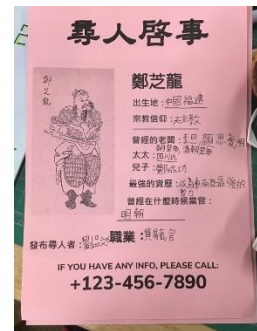 尋人啓事
鄭芝龍
鄭芝龍
出生地：中國福建
宗教信仰：天主教
曾經的老闆：李旦、顏思齊、明
朝皇帝、清朝皇帝
太太：田川氏
兒子：鄭成功
最強的資歷：成為東南亞最強的
曾經在什麼時候當官：
明朝
發布尋人者：劉
職業：
IF YOU HAVE ANY INFO, PLEASE CALL:
+123-456-7890